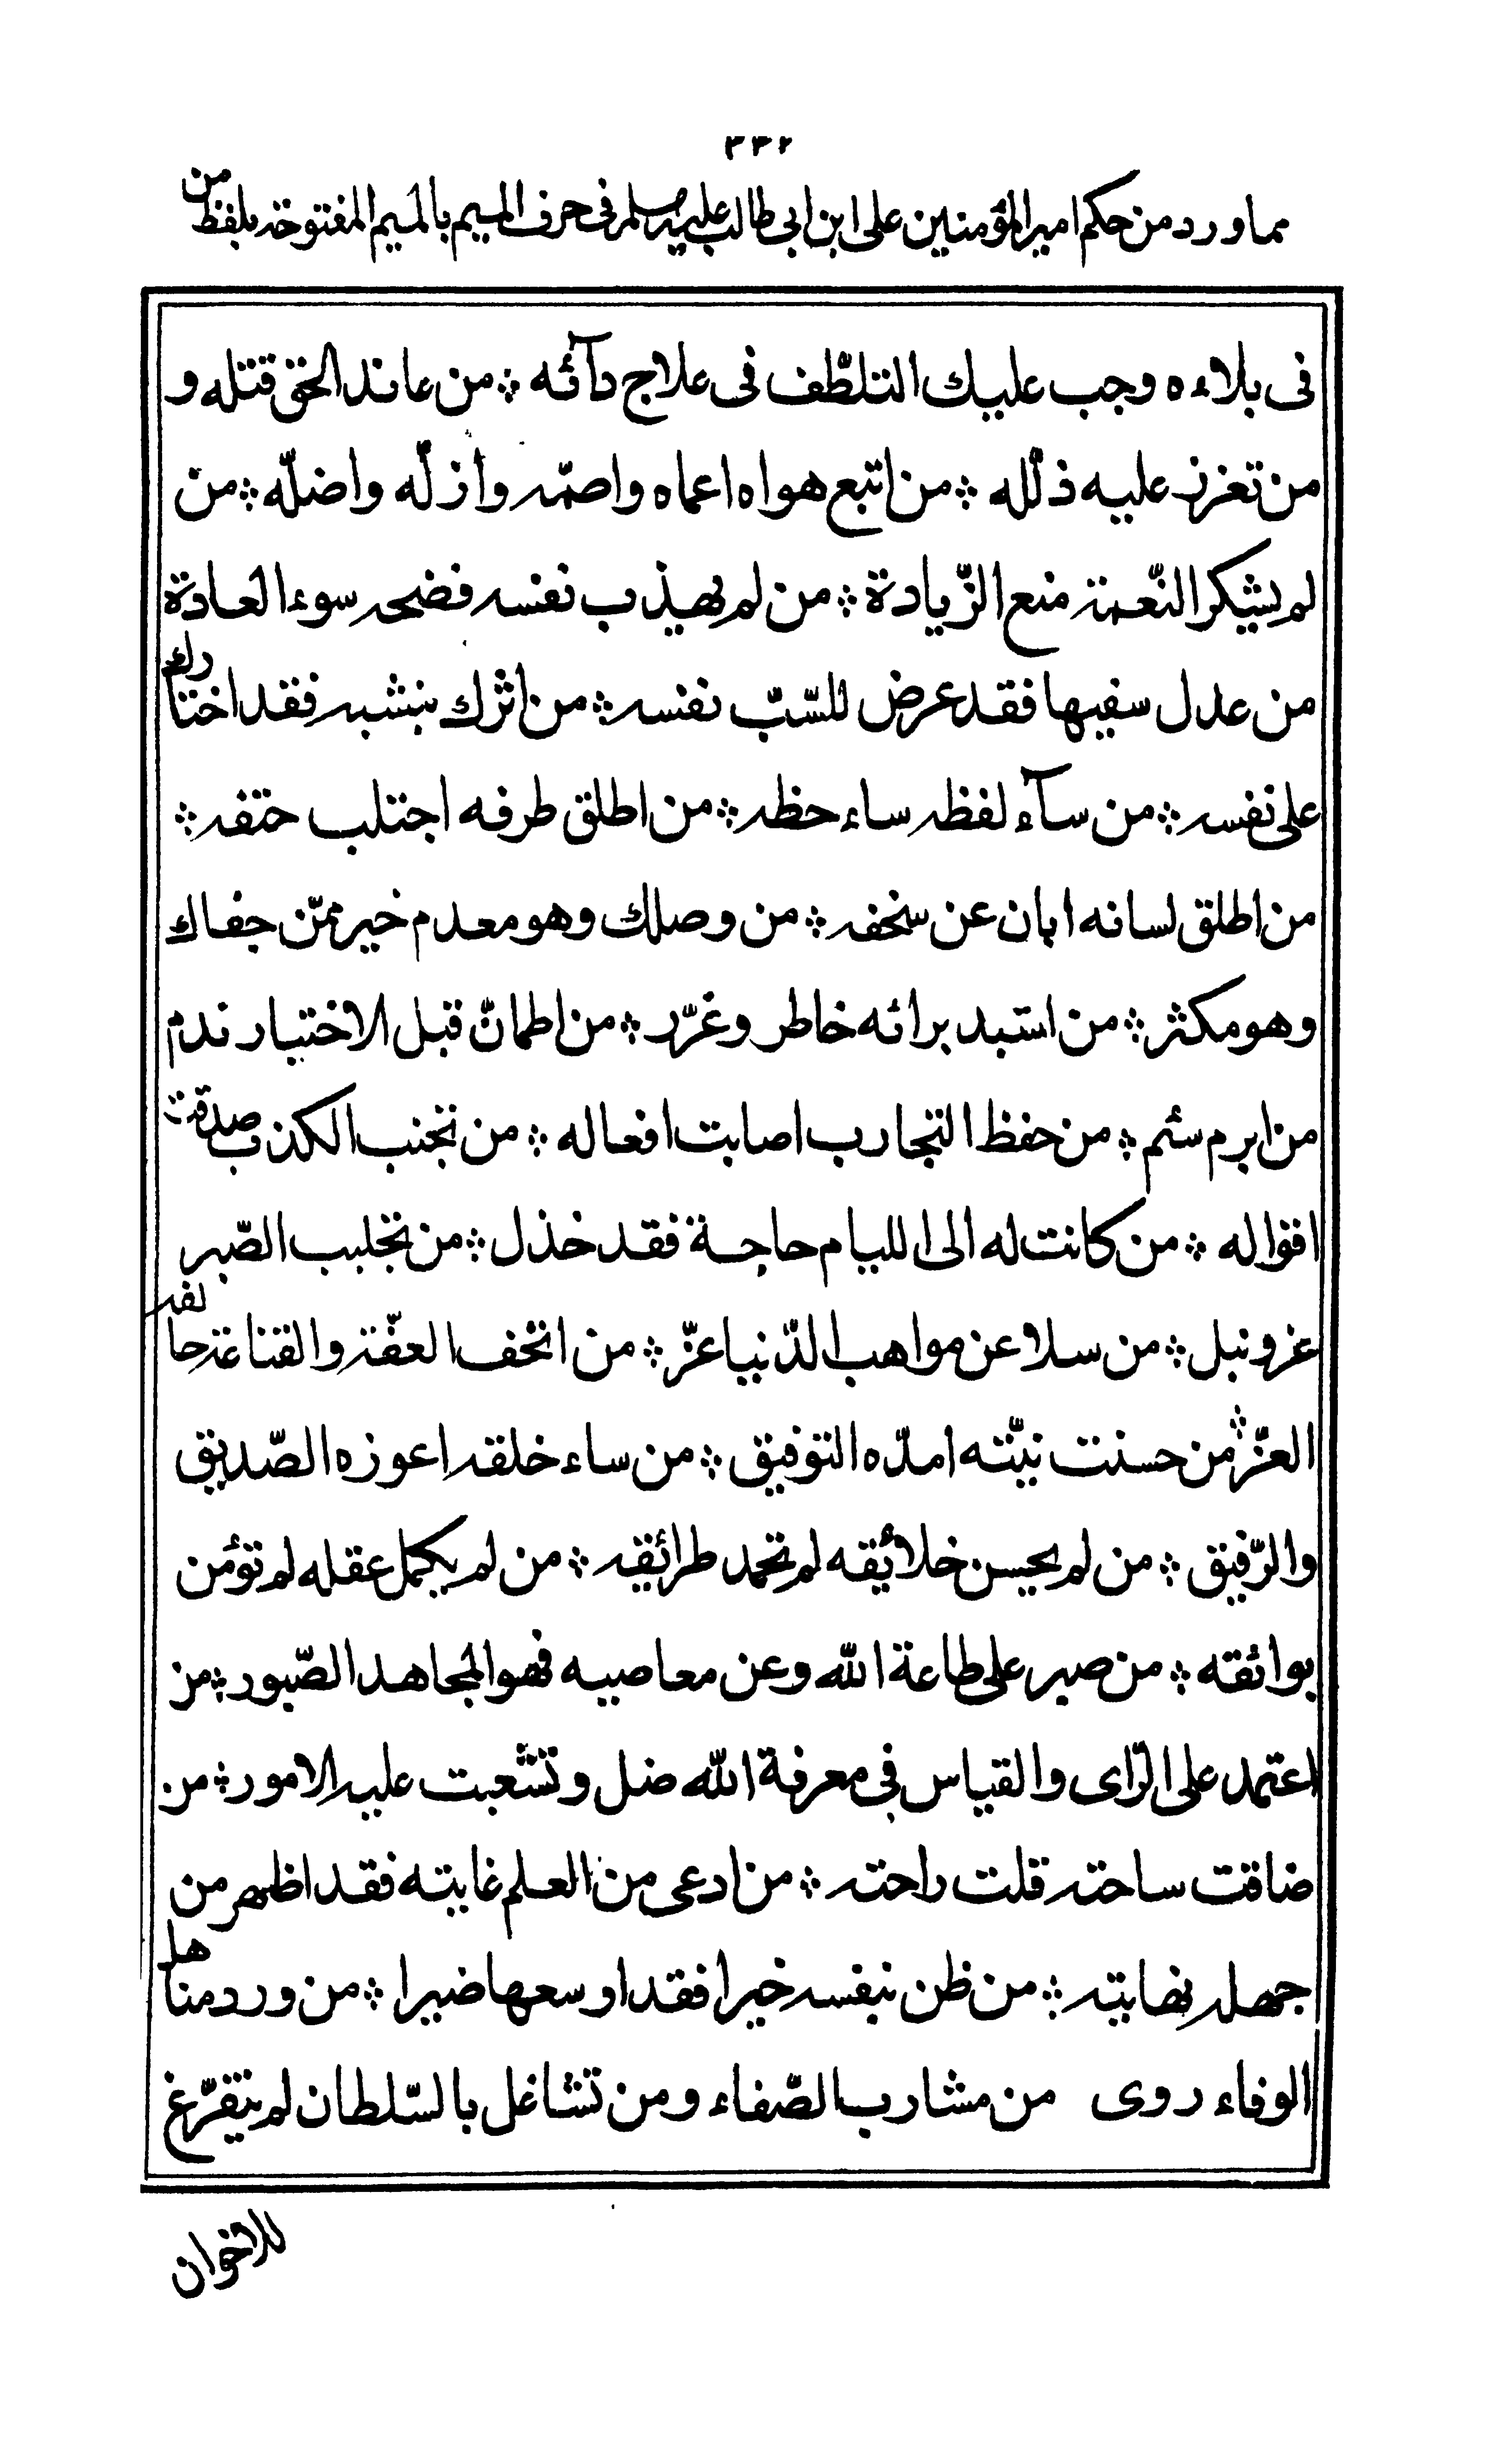 ٣٣٢
مما ورد من حكم امير المؤمنين على ابن ابى طالب عليه فى حرف الميم بالميم المفتوحة بلفظ من
فى بلاءه وجب عليك التلطّف فى علاج دآئه ؞ من عاند الحق قتله و
من تعزز عليه ذلّله ؞ من اتبع هواه اعماه واصمّه وأزلّه واضلّه ؞ من
لم يشكر النّعمة منع الزّيادة ؞ من لم يهذب نفسه فضحه سوء العادة
من عدل سفيها فقد عرض للسّبّ نفسه ؞ من اثرك بنشبه فقد اختارك
على نفسه ؞ من سآء لفظه ساء حظه ؞ من اطلق طرفه اجتلب حتفه ؞
من اطلق لسانه ابان عن سخفه ؞ من وصلك وهو معدم خير ممّن جفاك
وهو مكثر ؞ من استبد برائه خاطر وغرّر ؞ من اطمانّ قبل الاختبار ندم
من ابرم سئم ؞ من حفظ التجارب اصابت افعاله ؞ من تجنب الكذب صدقت
اقواله ؞ من كانت له الى الليام حاجة فقد خذل ؞ من تجلبب الصّبر
عز و نبل ؞ من سلا عن مواهب الدّنيا عزّ ؞ من اتحف العفّة والقناعة حالفه
العزّ ؞ من حسنت نيّته امدّه التوفيق ؞ من ساء خلقه اعوزه الصّديق
والرّفيق ؞ من لم يحسن خلائقه لم تحمد طرائقه ؞ من لم يكمل عقله لم تؤمن
بوائقه ؞ من صبر على طاعة الله وعن معاصيه فهو المجاهد الصّبور ؞ من
اعتمد على الرّاى والقياس فى معرفة الله ضل وتشعبت عليه الامور ؞ من
ضاقت ساحته قلت راحته ؞ من ادعى من العلم غايته فقد اظهر من
جهله نهايته ؞ من ظن بنفسه خيرا فقد اوسعها ضيرا ؞ من ورد مناهل
الوفاء روى من مشارب الصّفاء ومن تشاغل بالسّلطان لم يتفرّغ
للاخوان